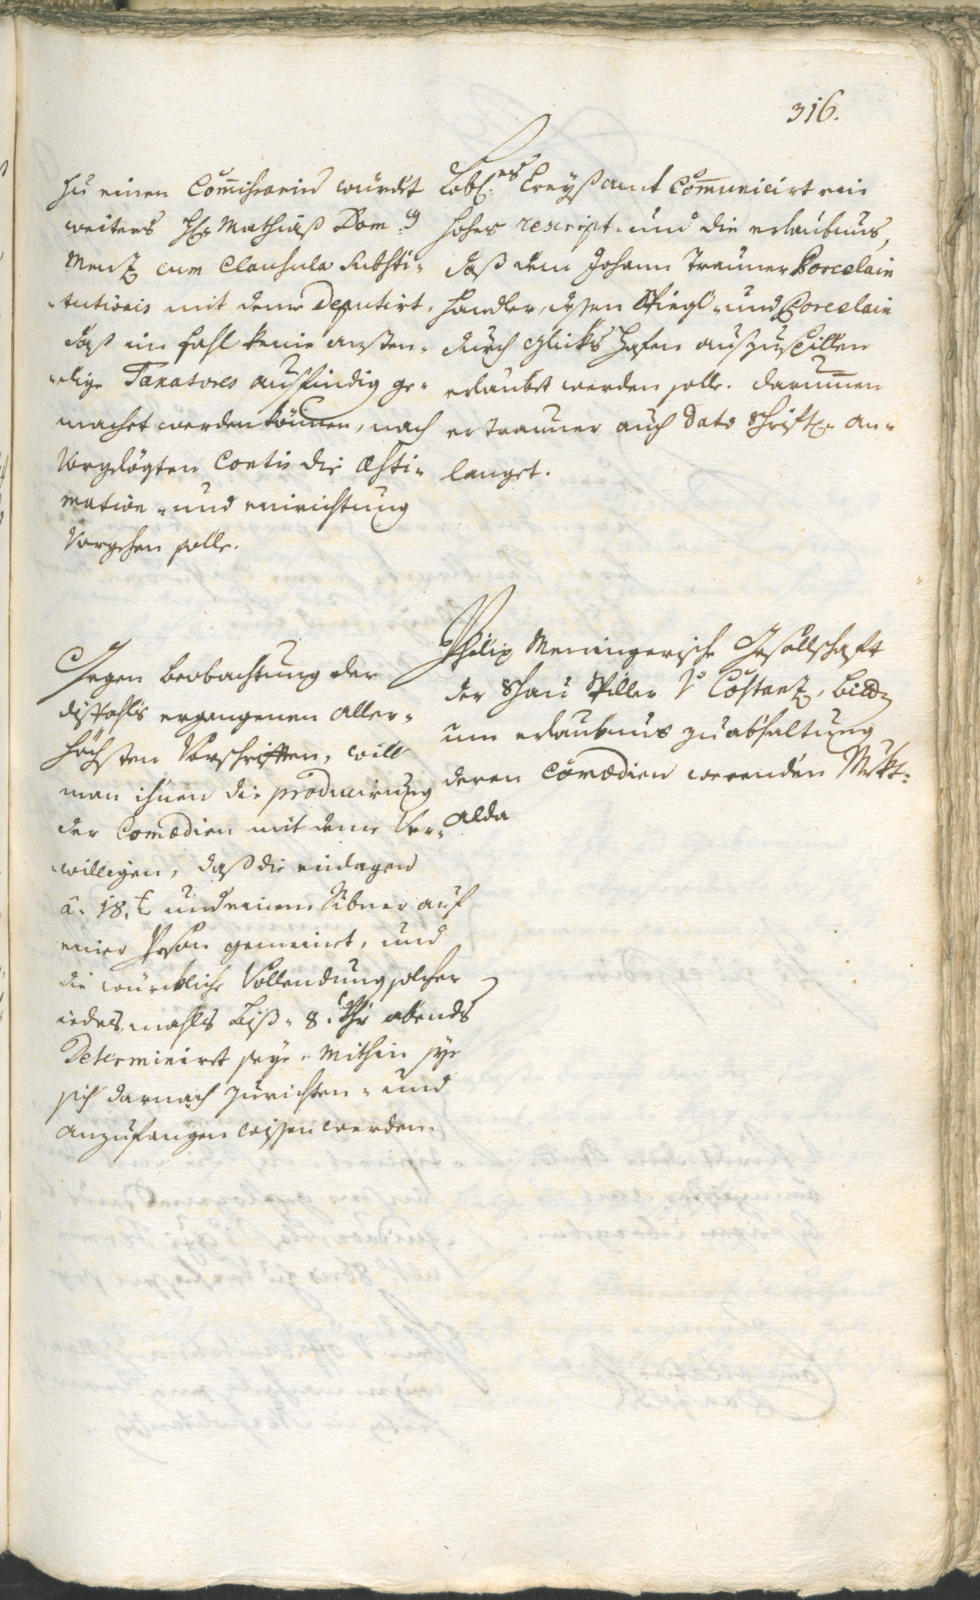 316.
Zu einen Commissario würdet
weiters H: Mathias Dom:
Menz cum Clausula substi-
tutionis mit deme Deputirt,
daß im fahl keine anstän-
dige Taxatores ausfindig ge-
machet werden können, nach
Vorgelögten Contis die Æsti-
mation- und einrichtung
Vorgehen solle.
Löbl:es Creysamt Communicirt ein
hohes rescript- und die erlaubnus,
daß dem Johann Trauner Porcelain
handler, dessen Spiegl- und Porcelain
durch Glücks Hafen auszuspillen
erlaubet werden solle. darumen
er Trauner auch dato schriftl: an-
langet.
Gegen beobachtung der
disfahls ergangenen aller-
höchsten Vorschrifften, will
man ihnen die producirung
der Comœdien mit deme Ver-
willigen, daß die einlagen
â. 18. und einem Sibner auf
einer Person gemeinet, und
die würckliche Vollendung solcher
iedes mahls biß- 8. Uhr abends
Determiniret seye- mithin sye
sich darnach zurichten- und
anzufangen wissen werden.
Philip Meningerische Gesellschaft
der Schau Spiller Vo Costanz, bitt
um erlaubnus zu abhaltung
deren Comœdien werenden Mrkt-
alda